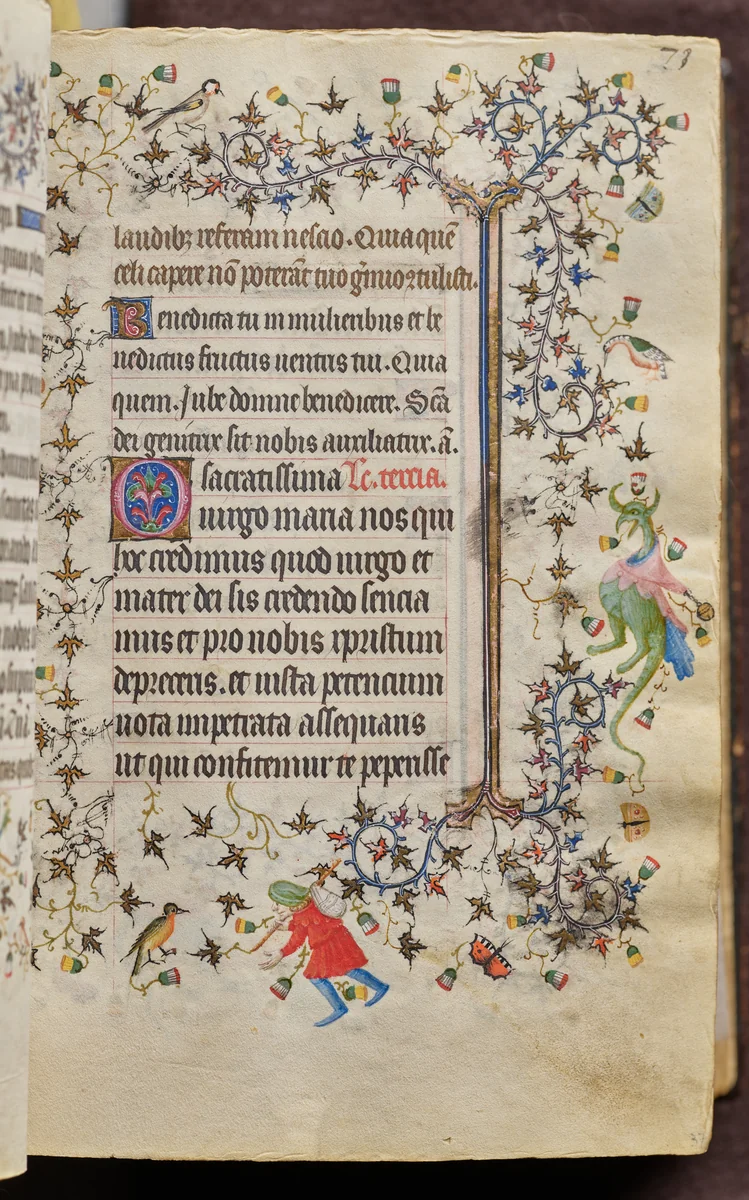 73
laudibꝫ referam nescio. Quia quē
celi capere nō poterāt tuo ḡmio ꝯtulisti.
Benedicta tu in mulieribus et be
nedictus fructus uentris tui. Quia
quem. Jube domne benedicere. Scā
dei genitrix sit nobis auxiliatrix. ā.
O sacratissima Lc. tercia.
uirgo maria nos qui
hoc credimus quod uirgo et
mater dei sis credendo sencia
mus et pro nobis xpristum
depreceris. et iusta petencium
uota impetrata assequaris
ut qui confitemur te peperisse